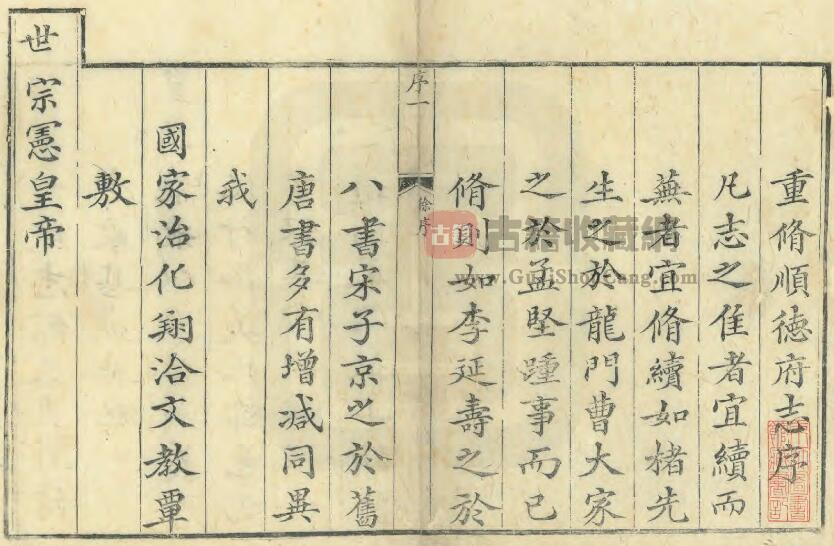 重脩順德府志序
凡志之佳者宜續而
蕪者宜脩續如褚先
生之於龍門曹大家
之於孟堅踵事而已
脩則如李延壽之於
序一
徐序
八書宋子京之於舊
唐書多有增减同異
我
國家治化翔洽文教覃
敷
世宗憲皇帝
古籍收藏網
www.GuJiShouCang.com